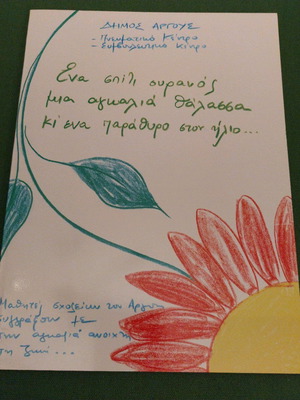 ΔΗΜΟΣ ΑΡΓΟΥΣ
- Πνευματικό Κέντρο
- Συμβουλευτικό Κέντρο
Ένα σπίτι ουρανός
μια αγκαλιά θάλασσα
κι ένα παράθυρο στον ήλιο...
Μαθητές σχολείων του Άργους
συγγράφουν με
την αγκαλιά ανοιχτή
στη ζωή...